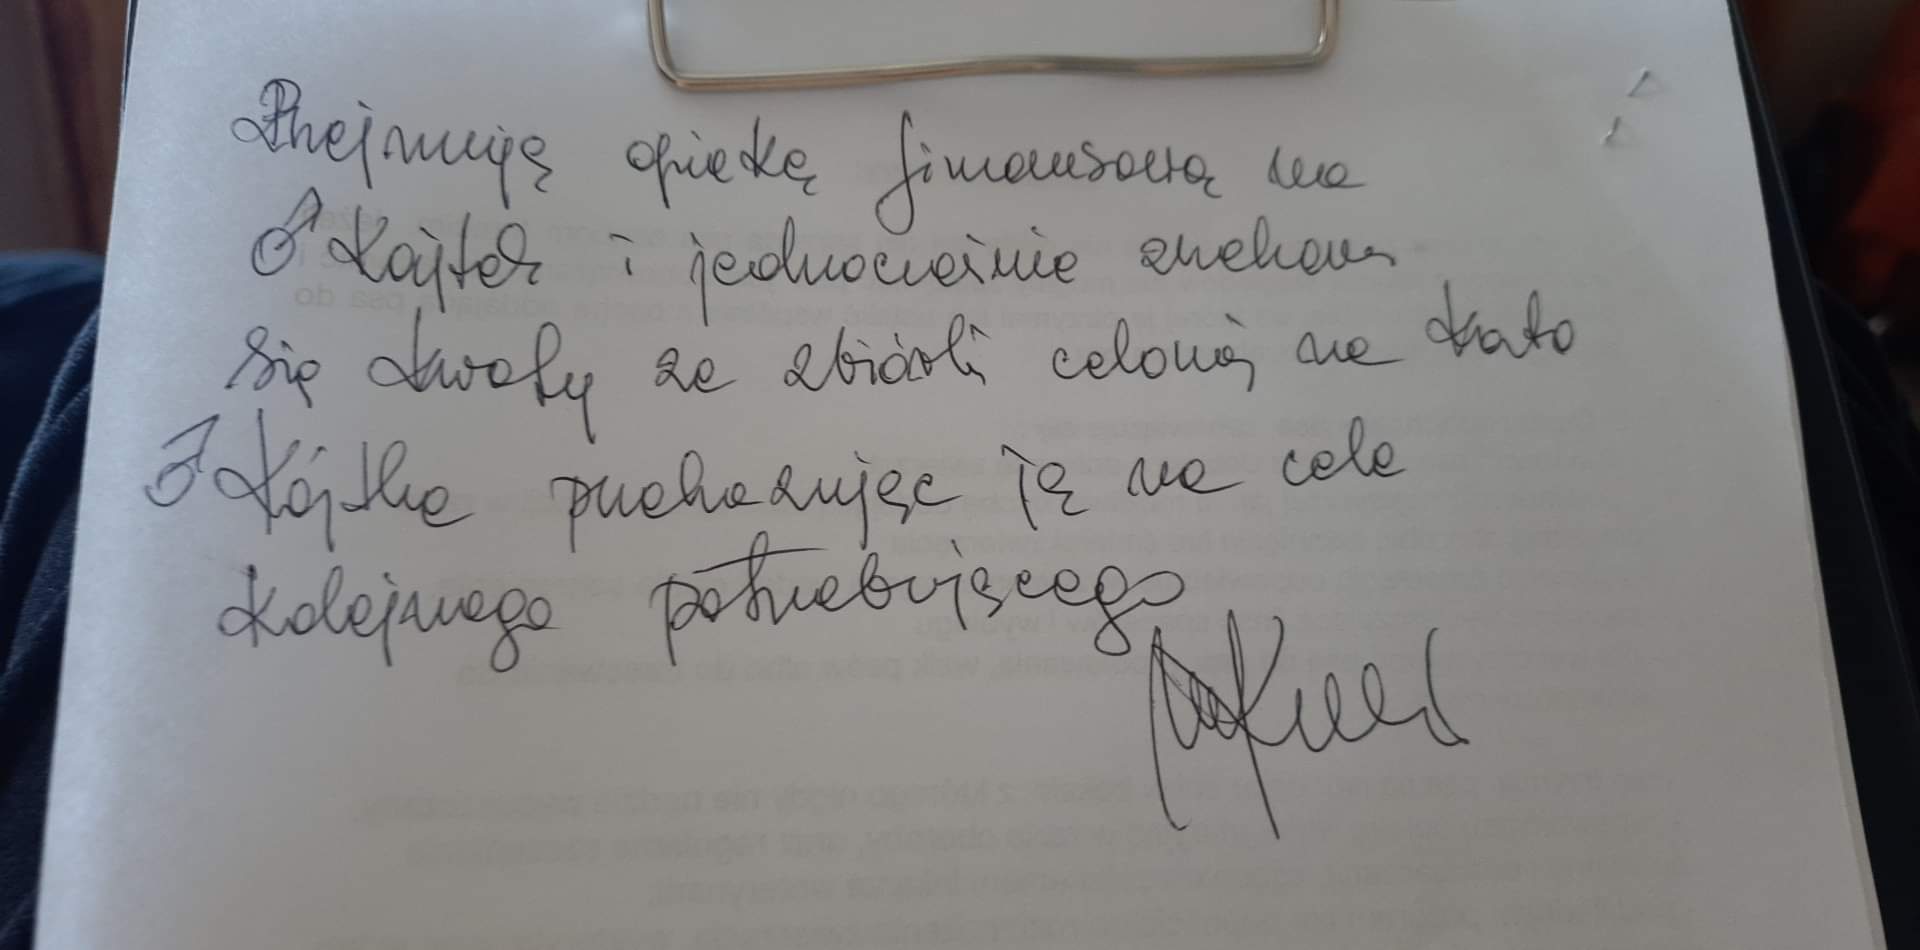 Przejmuję opiekę finansową na
♂ Kajtek i jednocześnie zrzekam
się kwoty ze zbiórki celowej na kato
♂ Kajtka przekazując ją na cele
kolejnego potrzebującego